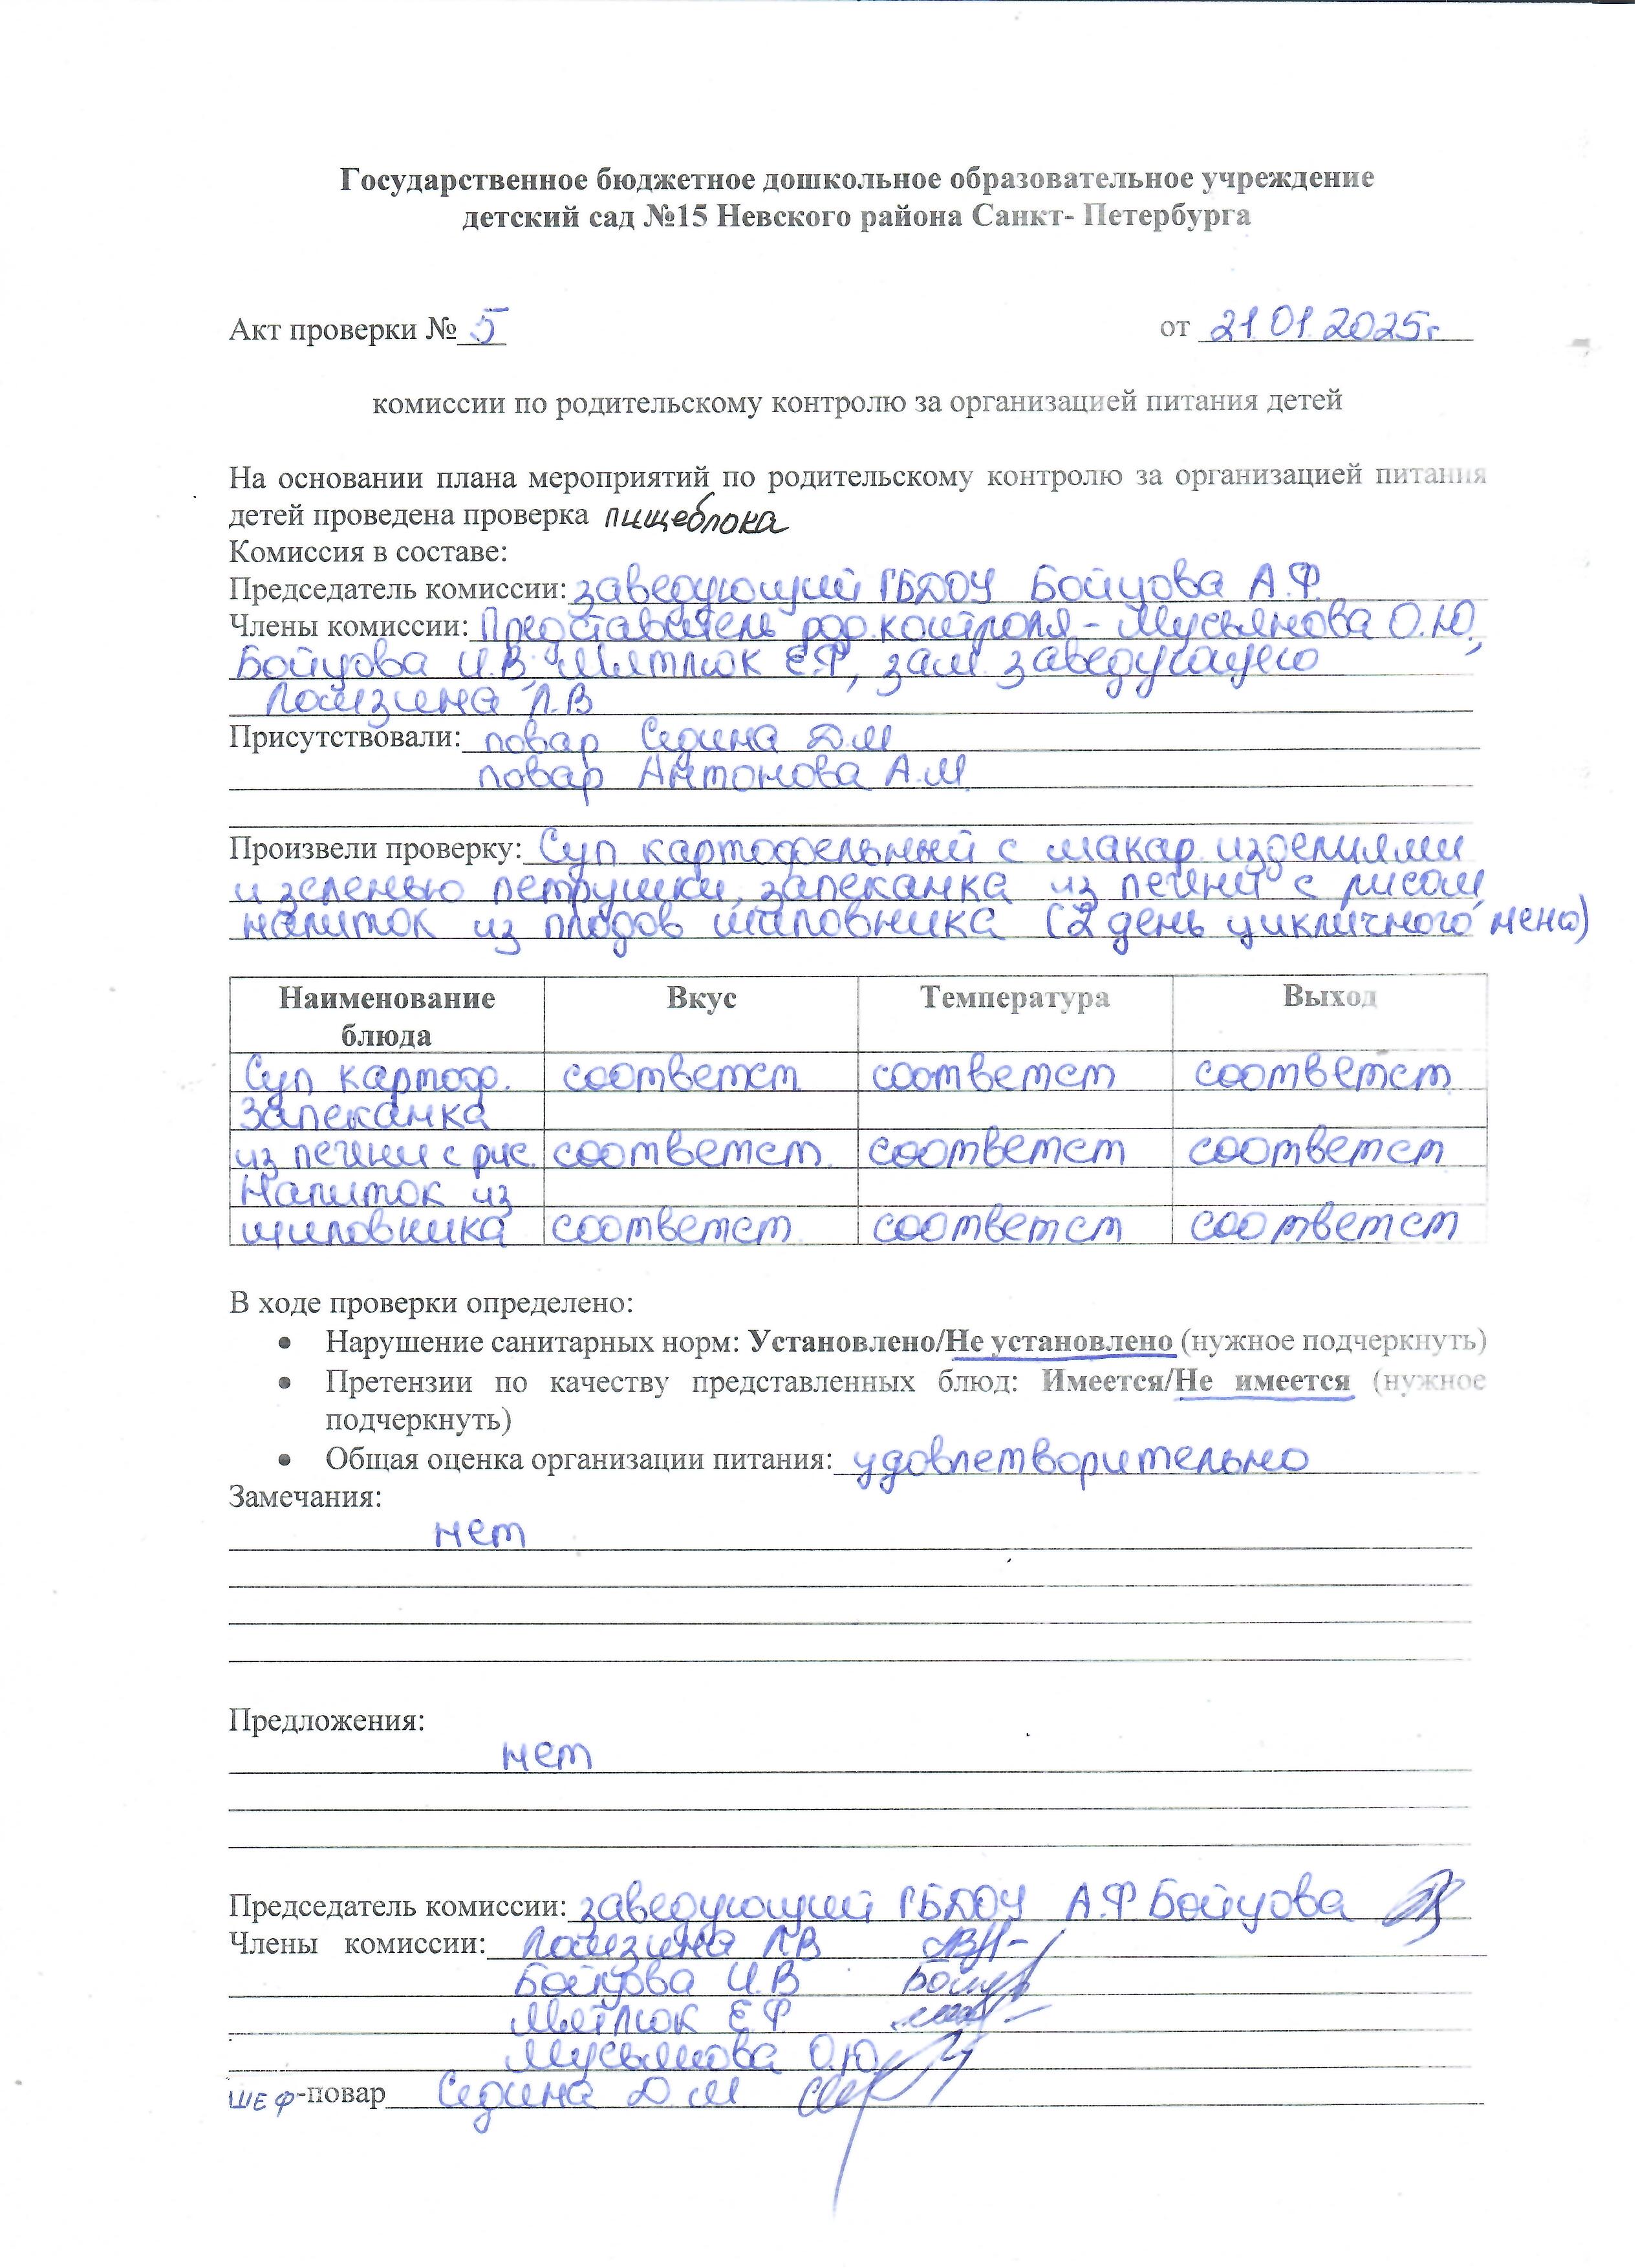 Государственное бюджетное дошкольное образовательное учреждение
детский сад №15 Невского района Санкт- Петербурга
Акт проверки № 5 от 21 01 2025г
комиссии по родительскому контролю за организацией питания детей
На основании плана мероприятий по родительскому контролю за организацией питания
детей проведена проверка пищеблока
Комиссия в составе:
Председатель комиссии: заведующий ГБДОУ Бойцова А.Ф.
Члены комиссии: Представитель род.контроля - Мусьянова О.Ю,
Бойцова И.В, Мятлюк Е.Ф, зам заведующего
Ломзина Л.В
Присутствовали: повар Седина Д М
повар Антонова А.М.
Произвели проверку: Суп картофельный с макар. изделиями
и зеленью петрушки, запеканка из печени с рисом,
напиток из плодов шиповника (2 день цикличного меню)
Наименование блюда Вкус Температура Выход
Суп картоф. соответст соответст соответст
Запеканка
из печени с рис. соответст соответст соответст
Напиток из
шиповника соответст соответст соответст
В ходе проверки определено:
• Нарушение санитарных норм: Установлено/Не установлено (нужное подчеркнуть)
• Претензии по качеству представленных блюд: Имеется/Не имеется (нужное
подчеркнуть)
• Общая оценка организации питания: удовлетворительно
Замечания:
нет
Предложения:
нет
Председатель комиссии: заведующий ГБДОУ А.Ф Бойцова
Члены комиссии: Ломзина Л.В
Бойцова И.В
Мятлюк Е Ф
Мусьянова О.Ю.
ШЕФ-повар Седина Д М